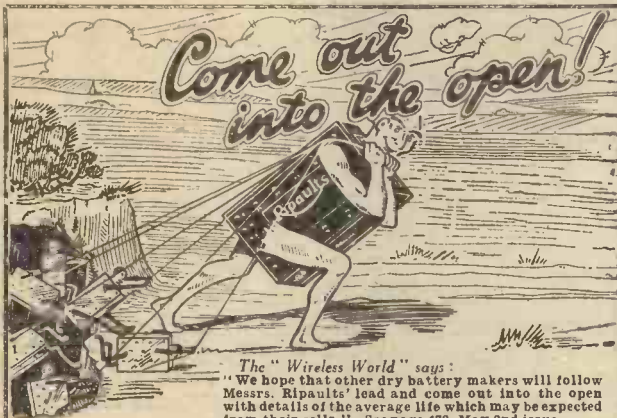 Come out
into the open!
Ripaults
The "Wireless World" says:
"We hope that other dry battery makers will follow
Messrs. Ripaults' lead and come out into the open
with details of the average life which may be expected